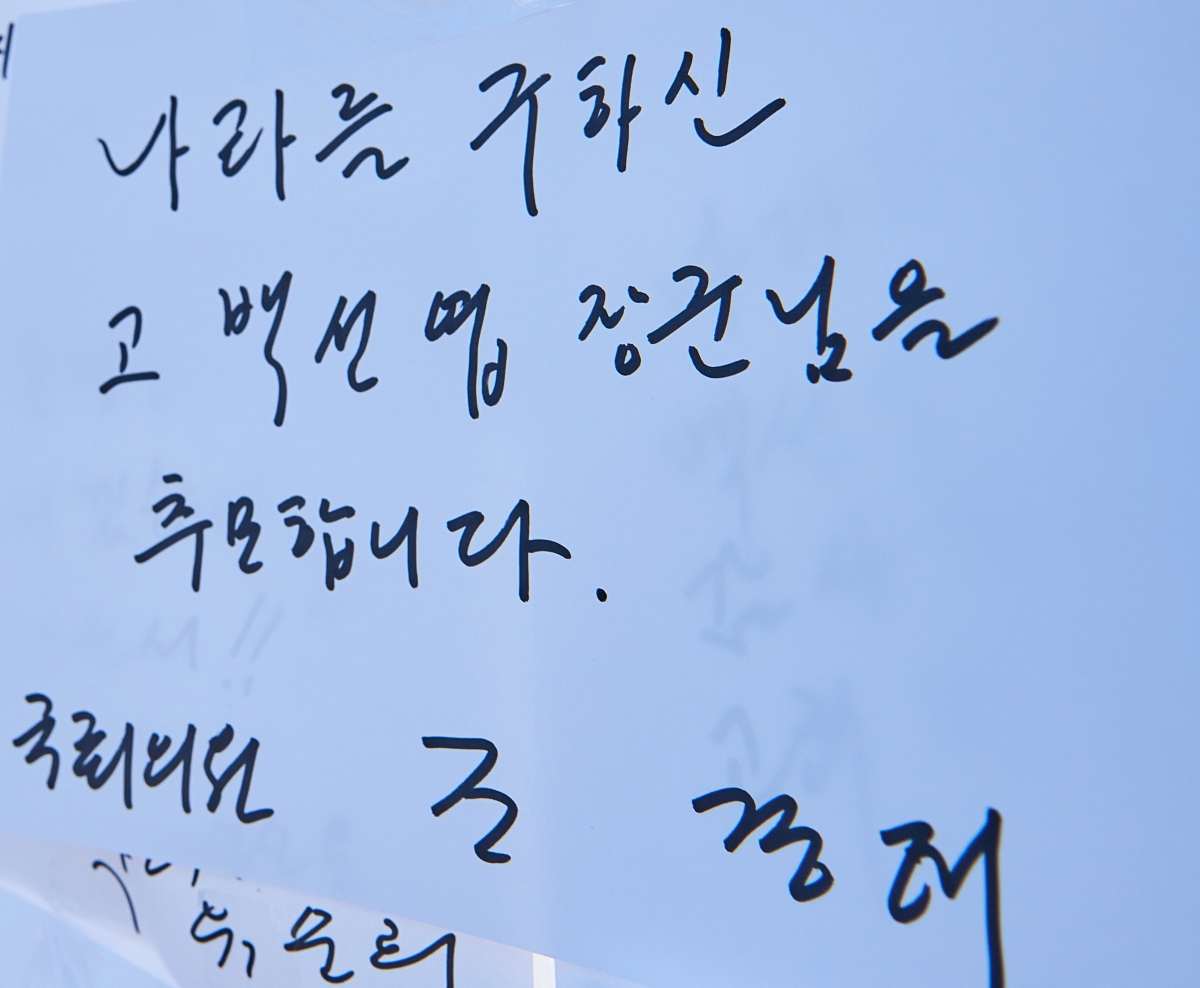 나라를 구하신
고 백선엽 장군님을
추모합니다.
국회의원 조 경태